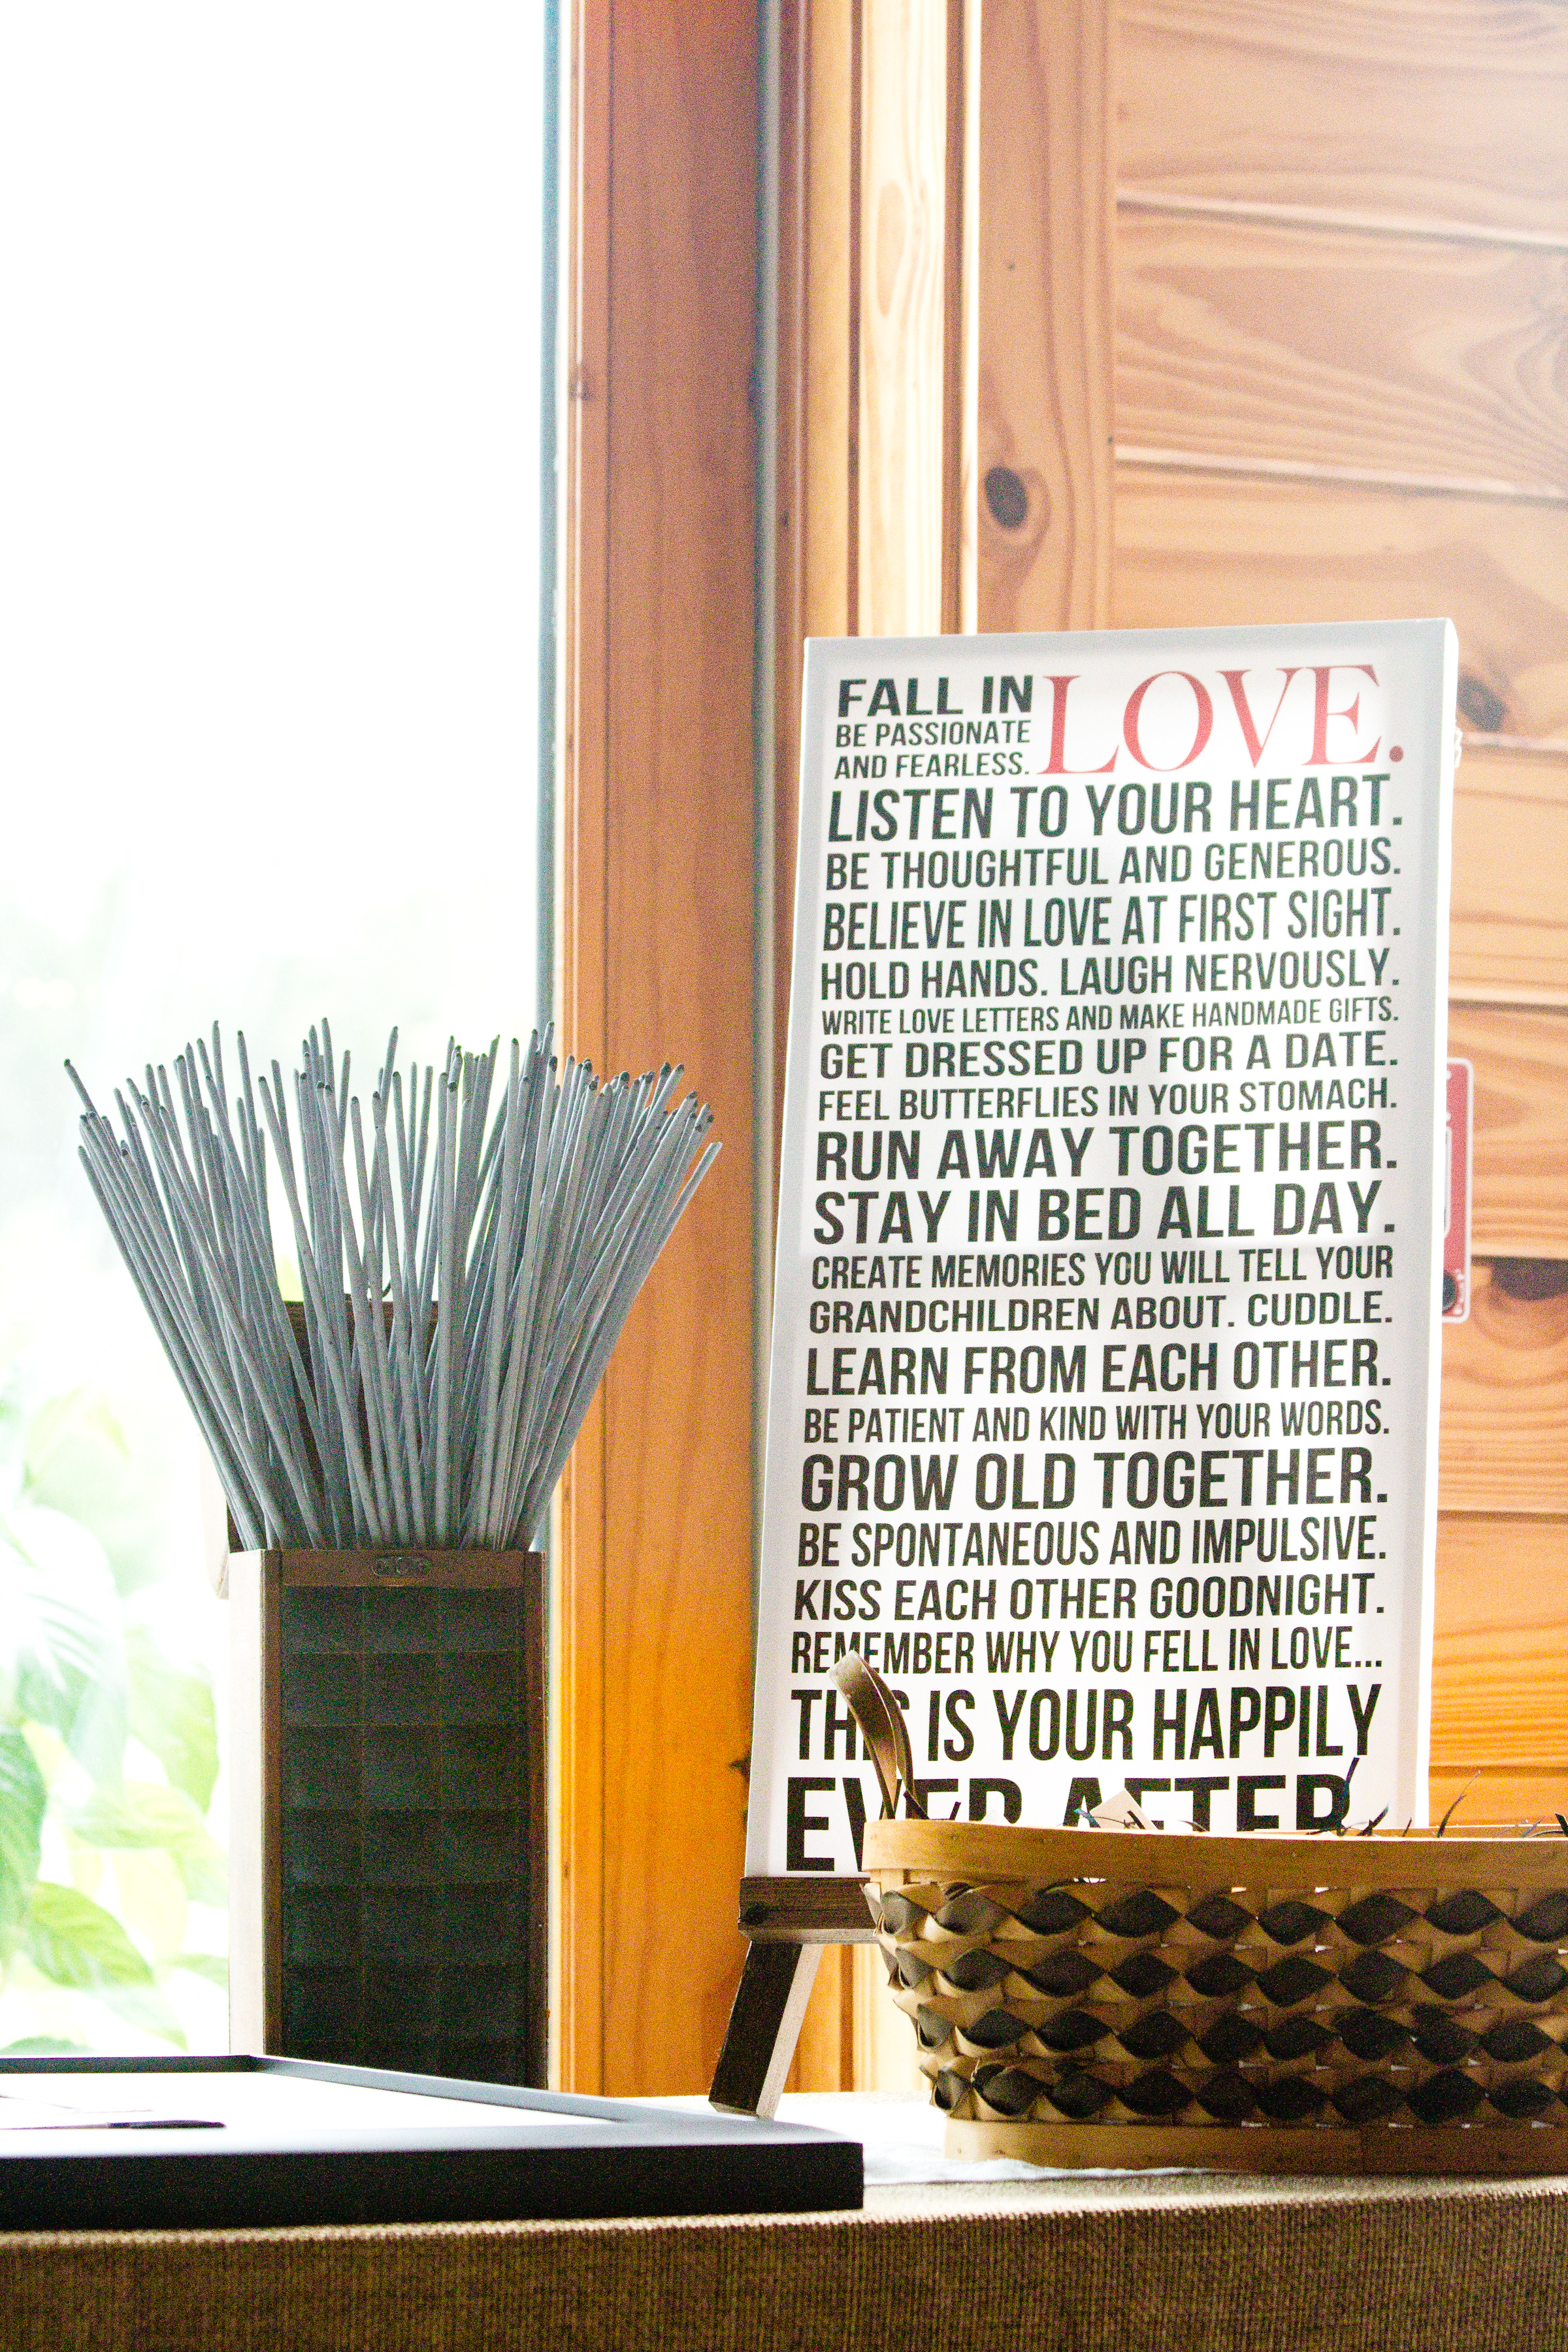 FALL IN LOVE.
BE PASSIONATE
AND FEARLESS.
LISTEN TO YOUR HEART.
BE THOUGHTFUL AND GENEROUS.
BELIEVE IN LOVE AT FIRST SIGHT.
HOLD HANDS. LAUGH NERVOUSLY.
WRITE LOVE LETTERS AND MAKE HANDMADE GIFTS.
GET DRESSED UP FOR A DATE.
FEEL BUTTERFLIES IN YOUR STOMACH.
RUN AWAY TOGETHER.
STAY IN BED ALL DAY.
CREATE MEMORIES YOU WILL TELL YOUR
GRANDCHILDREN ABOUT. CUDDLE.
LEARN FROM EACH OTHER.
BE PATIENT AND KIND WITH YOUR WORDS.
GROW OLD TOGETHER.
BE SPONTANEOUS AND IMPULSIVE.
KISS EACH OTHER GOODNIGHT.
REMEMBER WHY YOU FELL IN LOVE...
THIS IS YOUR HAPPILY
EVER AFTER